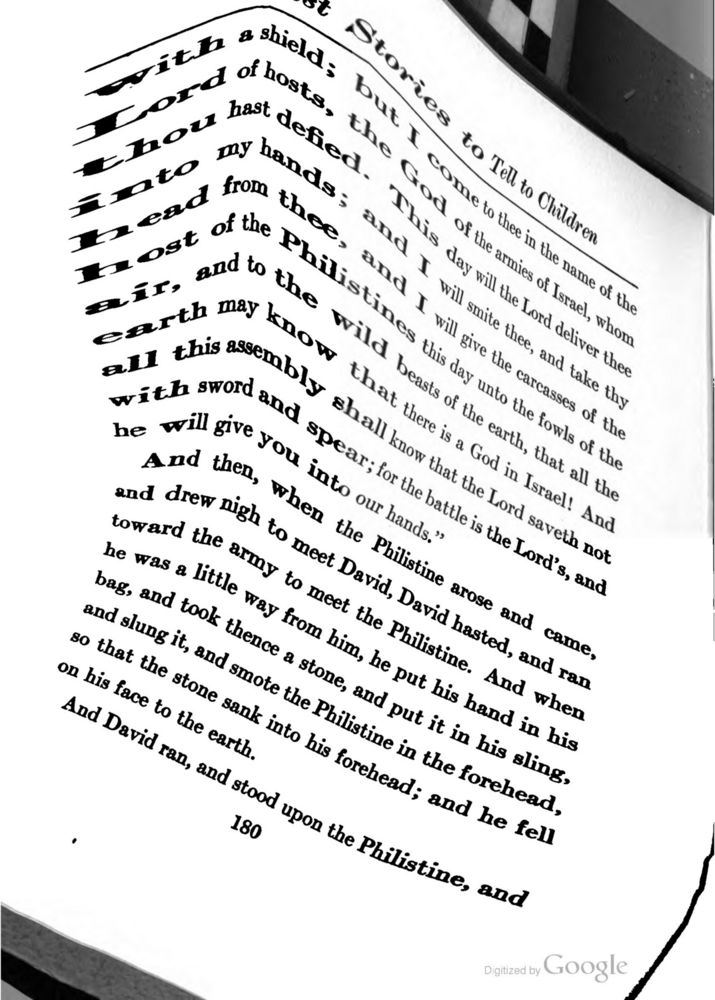 st Stories to Tell to Children
with a shield; but I come to thee in the name of the
Lord of hosts, the God of the armies of Israel, whom
thou hast defied. This day will the Lord deliver thee
into my hands; and I will smite thee, and take thy
head from thee, and I will give the carcasses of the
host of the Philistines this day unto the fowls of the
air, and to the wild beasts of the earth, that all the
earth may know that there is a God in Israel! And
all this assembly shall know that the Lord saveth not
with sword and spear; for the battle is the Lord's, and
he will give you into our hands."
And then, when the Philistine arose and came,
and drew nigh to meet David, David hasted, and ran
toward the army to meet the Philistine. And when
he was a little way from him, he put his hand in his
bag, and took thence a stone, and put it in his sling,
and slung it, and smote the Philistine in the forehead,
so that the stone sank into his forehead; and he fell
on his face to the earth.
And David ran, and stood upon the Philistine, and
180
Digitized by Google